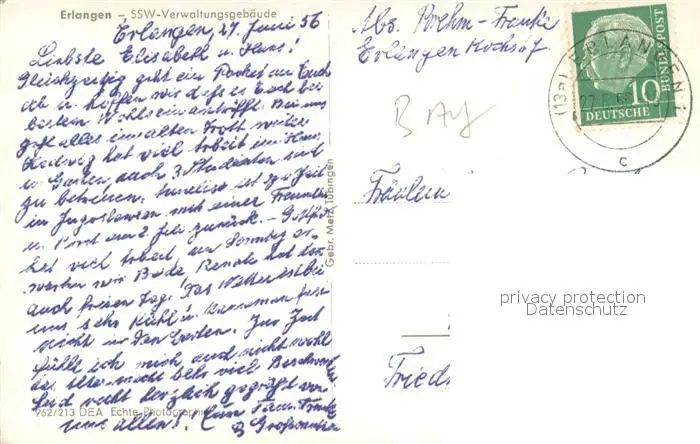 Erlangen – SSW-Verwaltungsgebäude
Erlangen, 27. Juni 56
Liebste Elisabeth u. Hans!
Gleichzeitig geht ein Packet an Euch
ab u. hoffen wir daß es Euch bei
bestem Wohlsein antrifft. Bei uns
geht alles im alten Trott weiter
Hedwig hat viel Arbeit im Haus
u. Garten, auch 3 Studenten sind
zu betreuen. ist zur Zeit
in Jugoslawien mit einer Freundin
u. kommt am 2. Juli zurück. –
hat viel Arbeit, am Sonntag er-
warten wir Renate hat da
auch freien Tag! Das Wetter ist bei
uns sehr kühl u. kann man
nicht in den Garten. Zur Zeit
fühle ich mich auch nicht wohl
das Alter macht sehr viel Beschwerden
Seid recht herzlich gegrüßt von
uns allen!
Großmutter
962/213 DEA Echte Photographie
Gebr. Metz Tübingen
Abs. Boehm-Franke
Erlangen Kochstr
BAY
Fräulein
Friedr
(13a) ERLANGEN 1
27.6.56
c
10
DEUTSCHE
BUNDESPOST
privacy protection
Datenschutz